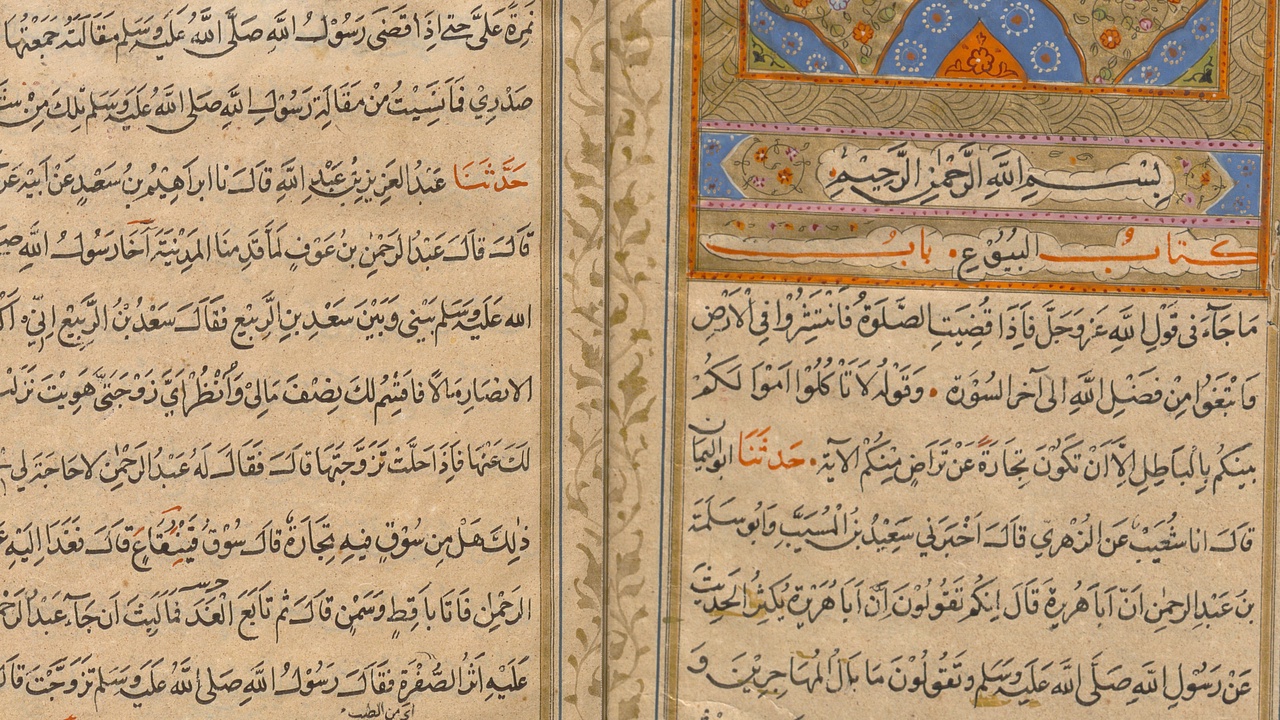 بسم الله الرحمن الرحيم
كتاب البيوع • باب
مَا جَآءَ فِي قَوْلِ اللَّهِ عَزَّ وَجَلَّ فَإِذَا قُضِيَتِ الصَّلٰوةُ فَانْتَشِرُوْا فِي الْاَرْضِ
وَابْتَغُوا مِنْ فَضْلِ اللَّهِ الى آخر السُّوْرَة • وَقَوْلِهِ لَا تَاْكُلُوْا اَمْوَالَكُمْ
بَيْنَكُمْ بِالْبَاطِلِ اِلَّا اَنْ تَكُوْنَ تِجَارَةً عَنْ تَرَاضٍ مِنْكُمْ الآية • حَدَّثَنَا ابواليمان
قَالَ انا شُعَيْبٌ عَنِ الزُّهْرِيِّ قَالَ اَخْبَرَنِي سَعِيْدُ بْنُ الْمُسَيَّبِ وَابُو سَلَمَةَ
بْنُ عَبْدِ الرَّحْمٰنِ اَنَّ اَبَا هُرَيْرَةَ قَالَ اِنَّكُمْ تَقُوْلُوْنَ اِنَّ اَبَا هُرَيْرَةَ يُكْثِرُ الْحَدِيْثَ
عَنْ رَسُوْلِ اللَّهِ صَلَّى اللَّهُ عَلَيْهِ وَسَلَّمَ وَتَقُوْلُوْنَ مَا بَالُ الْمُهَاجِرِيْنَ وَ
نَمِرَةً عَلَيَّ حَتّى اِذَا قَضَى رَسُوْلُ اللَّهِ صَلَّى اللَّهُ عَلَيْهِ وَسَلَّمَ مَقَالَتَهُ جَمَعْتُهَا
صَدْرِيْ فَمَا نَسِيْتُ مِنْ مَقَالَةِ رَسُوْلِ اللَّهِ صَلَّى اللَّهُ عَلَيْهِ وَسَلَّمَ تِلْكَ مِنْ
حَدَّثَنَا عَبْدُ الْعَزِيْزِ بْنُ عَبْدِ اللَّهِ قَالَ نا ابراهيمُ بْنُ سَعْدٍ عَنْ اَبِيْهِ عَنْ
قَالَ قَالَ عَبْدُ الرَّحْمٰنِ بْنُ عَوْفٍ لَمَّا قَدِمْنَا الْمَدِيْنَةَ آخَا رَسُوْلُ اللَّهِ
الله عَلَيْهِ وَسَلَّمَ بَيْنِيْ وَبَيْنَ سَعْدِ بْنِ الرَّبِيْعِ فَقَالَ سَعْدُ بْنُ الرَّبِيْعِ اِنِّيْ
الانصار مالًا فاقسم لك نِصْفَ مَالِيْ وَانْظُرْ اَيَّ زَوْجَتَيَّ هَوِيْتَ نَزَلْتُ
لَكَ عَنْهَا فَاِذَا حَلَّتْ تَزَوَّجْتَهَا قَالَ فَقَالَ لَهُ عَبْدُ الرَّحْمٰنِ لا حَاجَةَ لِي
ذٰلِكَ هَلْ مِنْ سُوْقٍ فِيْهِ تِجَارَةٌ قَالَ سُوْقُ قَيْنُقَاعَ قَالَ فَغَدَا اِلَيْهِ
الرَّحْمٰنِ فَاَتَا بِاَقِطٍ وَسَمْنٍ قَالَ ثُمَّ تَابَعَ الْغَدَ فَمَا لَبِثَ اَنْ جَآءَ عَبْدُ الرَّحْمٰنِ
عَلَيْهِ اَثَرُ الصُّفْرَةِ فَقَالَ رَسُوْلُ اللَّهِ صَلَّى اللَّهُ عَلَيْهِ وَسَلَّمَ تَزَوَّجْتَ قَالَ
اى من الطيب